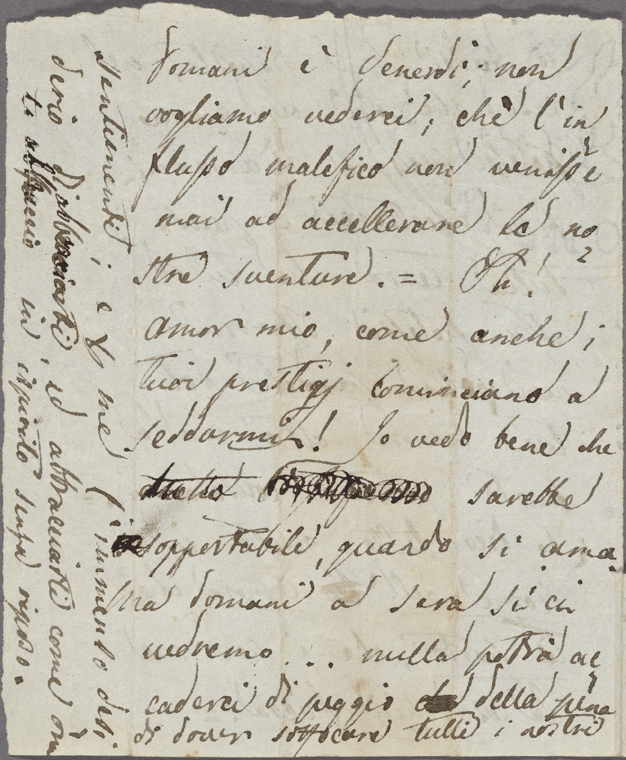 Domani è Venerdì; non
vogliamo vederci; chè l'in
flusso malefico non venisse
mai ad accellerare le no
stre sventure. = Oh!
amor mio, come anche i
tuoi prestigj cominciano a
sedurmi! Io vedo bene che
tutto sarebbe
soppertabile, quando si ama.
Ma domani a sera sì ci
vedremo... nulla potrà ac
caderci di peggio della pena
di dover soffocare tutti i nostri
sentimenti; e per me l'immenso desi
derio di abbracciarti, ed abbracciarti come ora
te abbraccio in ispirito senza riposo.